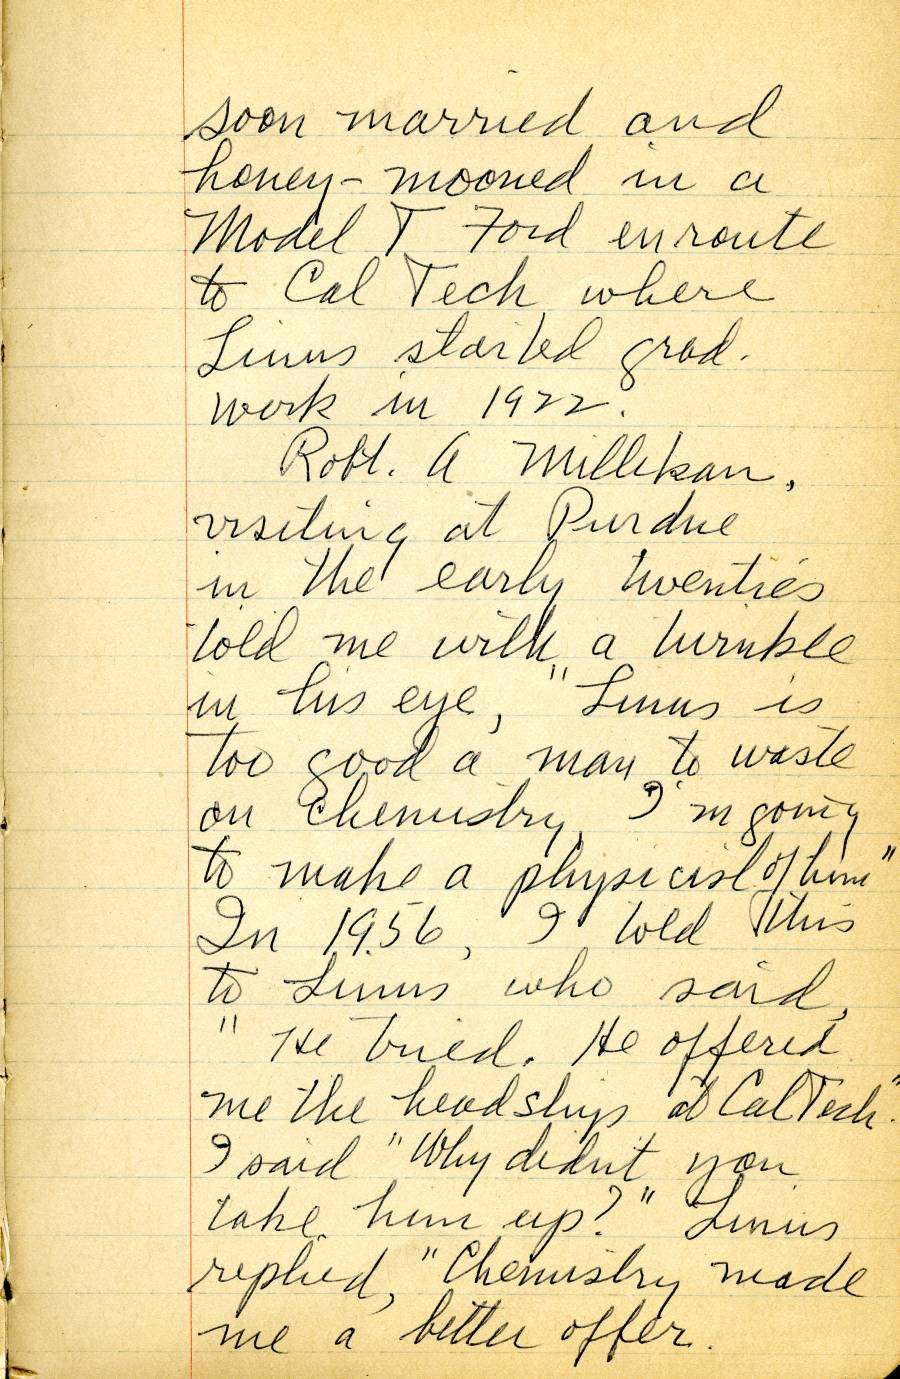 soon married and
honey-mooned in a
Model T Ford enroute
to Cal Tech where
Linus started grad.
work in 1922.
Robt. A Millikan,
visiting at Purdue
in the early twenties
told me with a twinkle
in his eye, "Linus is
too good a man to waste
on Chemistry, I'm going
to make a physicist of him"
In 1956, I told this
to Linus who said,
"He tried. He offered
me the headship at CalTech".
I said "Why didn't you
take him up?" Linus
replied, "Chemistry made
me a better offer.